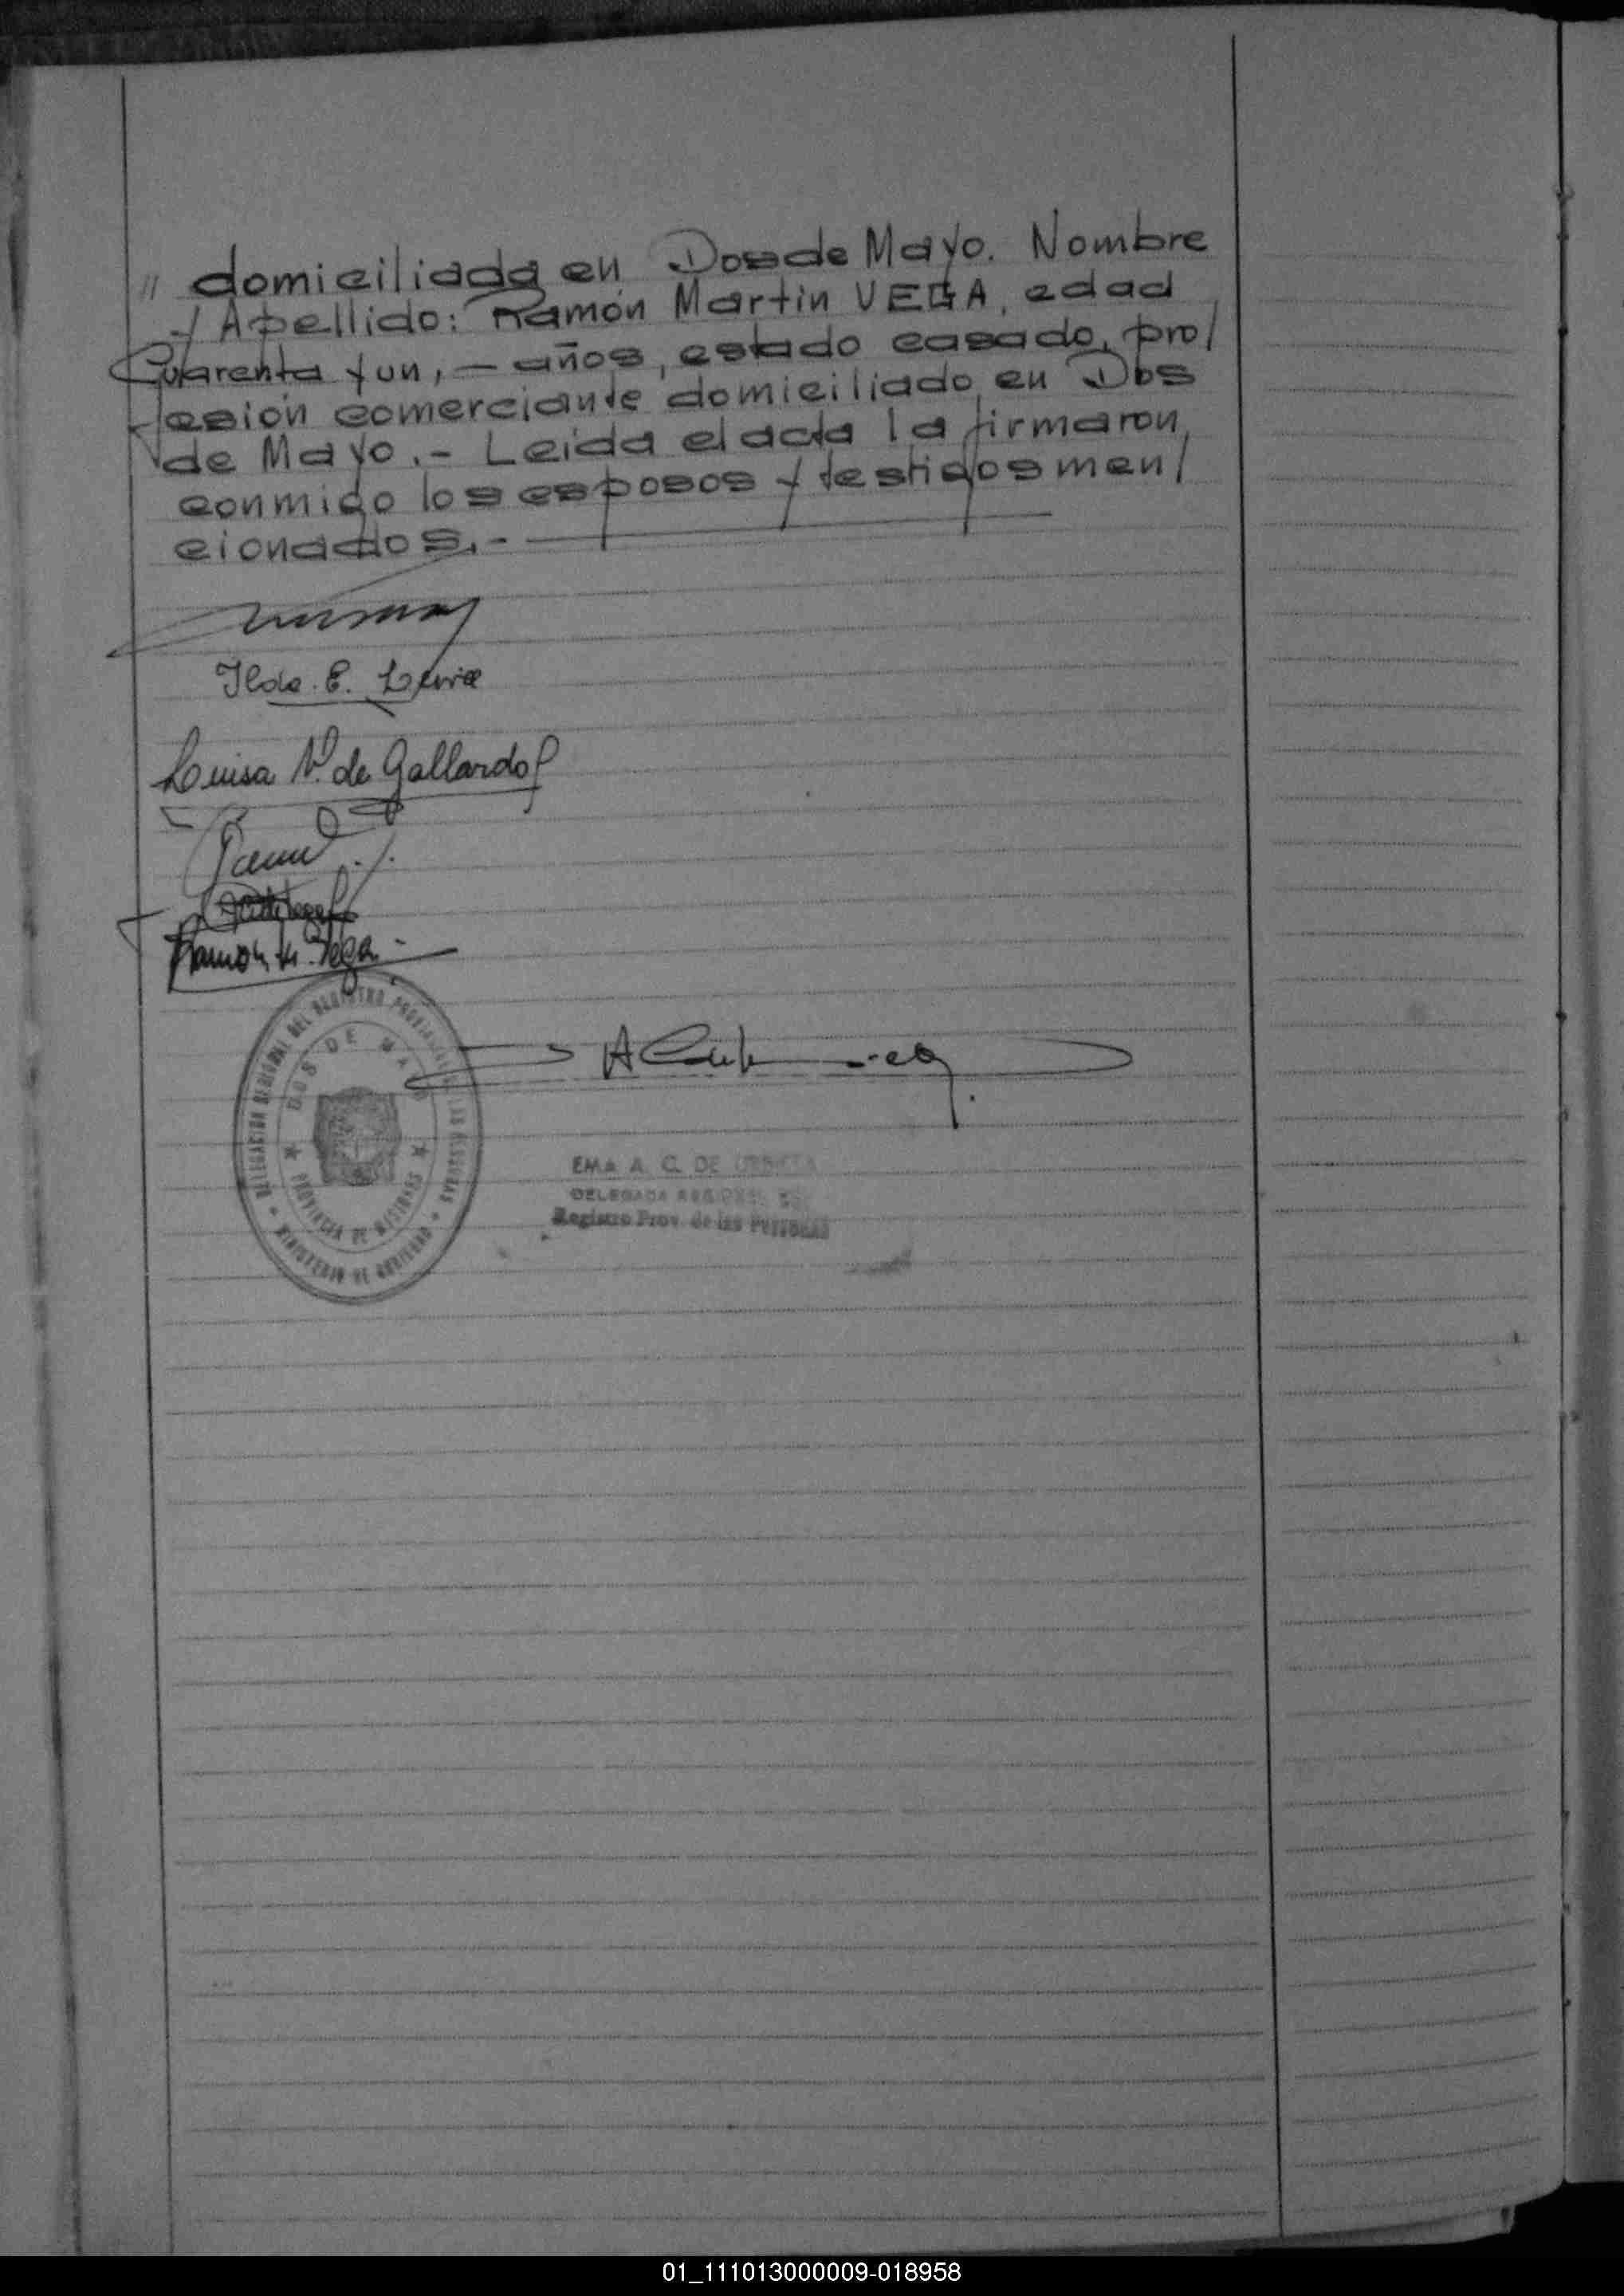 " domiciliada en Dos de Mayo. Nombre
y Apellido: Ramón Martin VEGA, edad
Cuarenta y un, — años, estado casado, pro/
fesión comerciante domiciliado, en Dos
de Mayo.- Leida el acta la firmaron,
conmigo los esposos y testigos men/
cionados.-
Ilda. E.
Luisa N. de Gallardo
Ramón M. Vega.-
DELEGACION REGIONAL DEL REGISTRO PROVINCIAL DE LAS PERSONAS
DOS DE MAYO
PROVINCIA DE MISIONES
MINISTERIO DE GOBIERNO
EMA A. C. DE
DELEGADA REGIONAL
Registro Prov. de las Personas
01_111013000009-018958